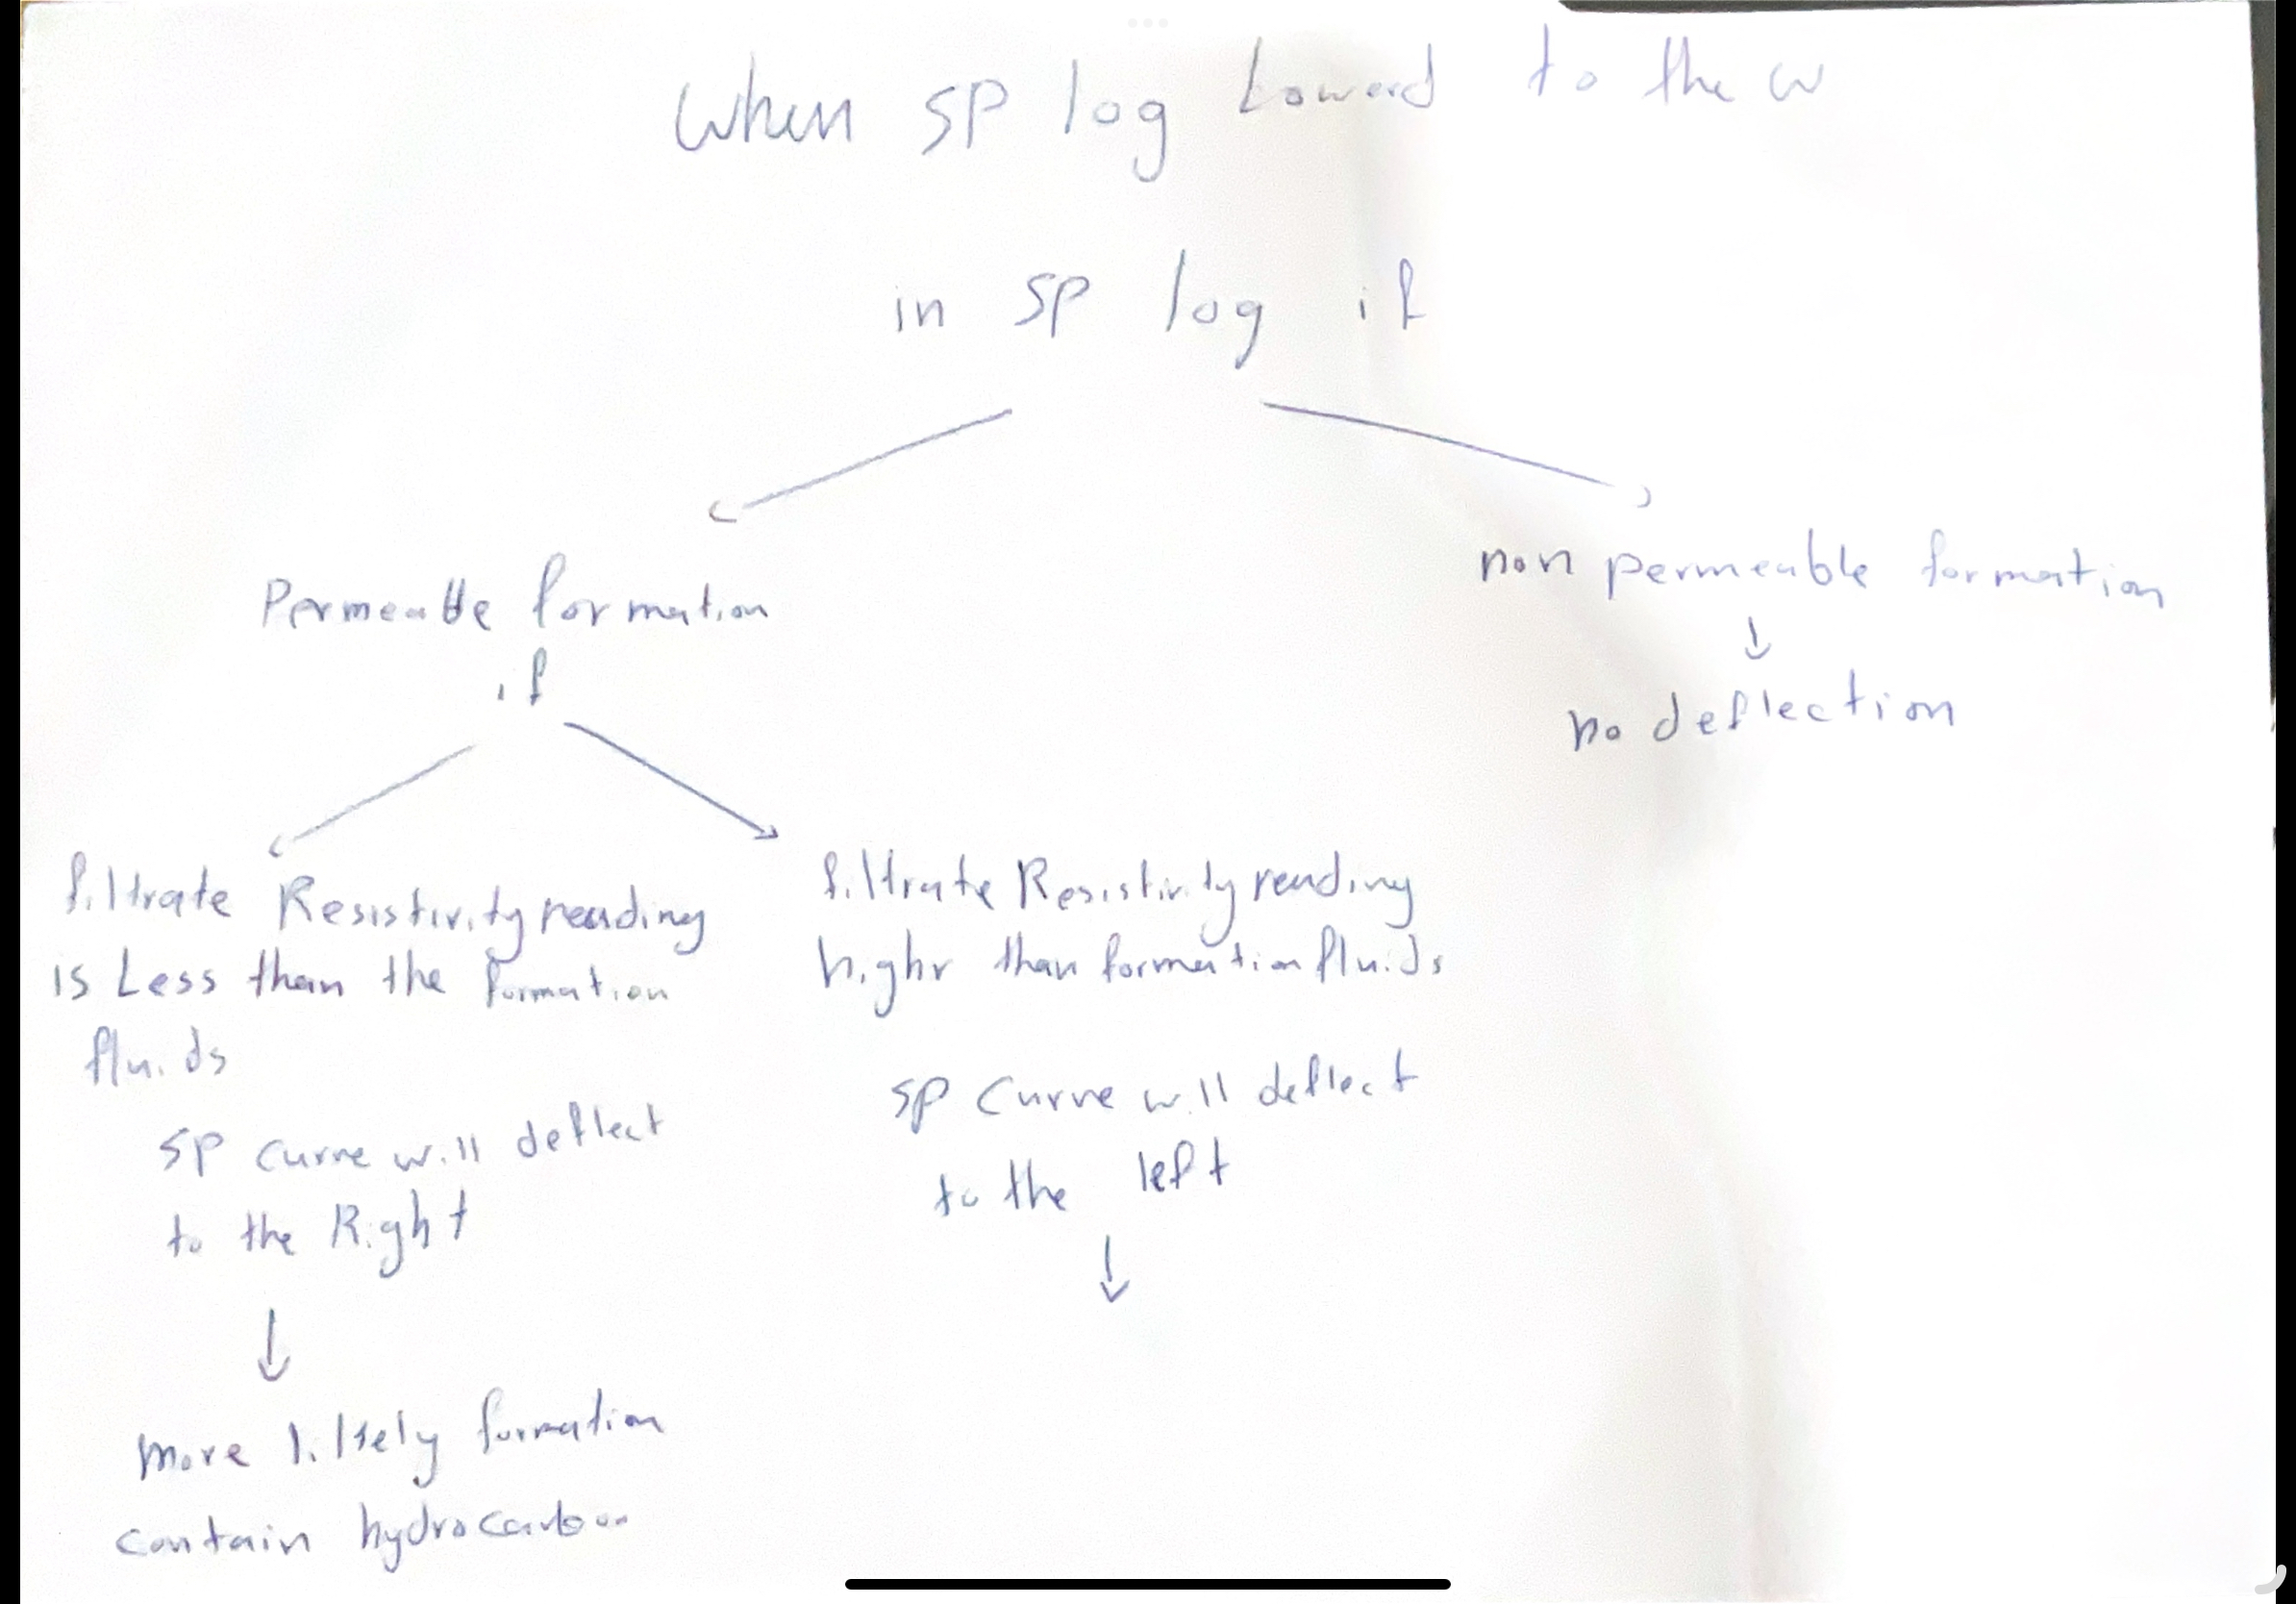 When SP log Loward to the w
in SP log if
Permeable formation
if
non permeable formation
no deflection
filtrate Resistivity reading
is Less than the formation
fluids
SP curve will deflect
to the Right
more likely formation
contain hydrocarbon
filtrate Resistivity reading
highr than formation fluids
SP Curve will deflect
to the left